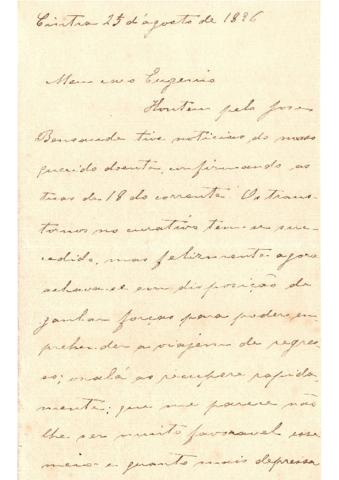 Cintra 25 d'agosto de 1896
Meu caro Eugenio
Hontem pelo José
Bensaude tive noticias do nosso
querido doente, confirmando as
tuas de 18 do corrente. Os trans-
tornos no curativo têm-se suc-
cedido, mas felizmente agora
achava-se em disposição de
ganhar forças para poder em-
prehender a viajem de regres-
so; oxalá as recupere rapida-
mente; que me parece não
lhe ser muito favoravel esse
meio e quanto mais depressa